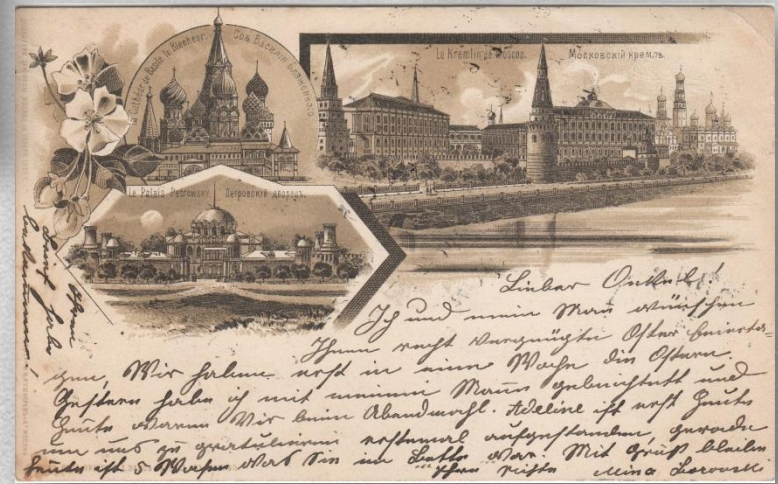 La Cathédrale de Basile le Bienheur.
Соб. Василія блаженнаго
Le Kremlin de Moscou.
Московскій кремль.
Le Palais Petrowsky
Петровскій дворецъ.
Lieber Onkel!
Ich und mein Man wünschen
Ihnen recht vergnügte Oster Feierta-
gen, Wir haben erst in eine Woche die Ostern.
Gestern habe ich mit meinem Mann gebeichtet und
Heute waren Wir beim Abendmahl. Adeline ist erst Heute
um uns zu gratulieren erstemal aufgestanden, gerade
Heute ist 5 Wochen was Sie im Bette war. Mit Gruß bleiben
Ihre Nichte Mina
Brief habe